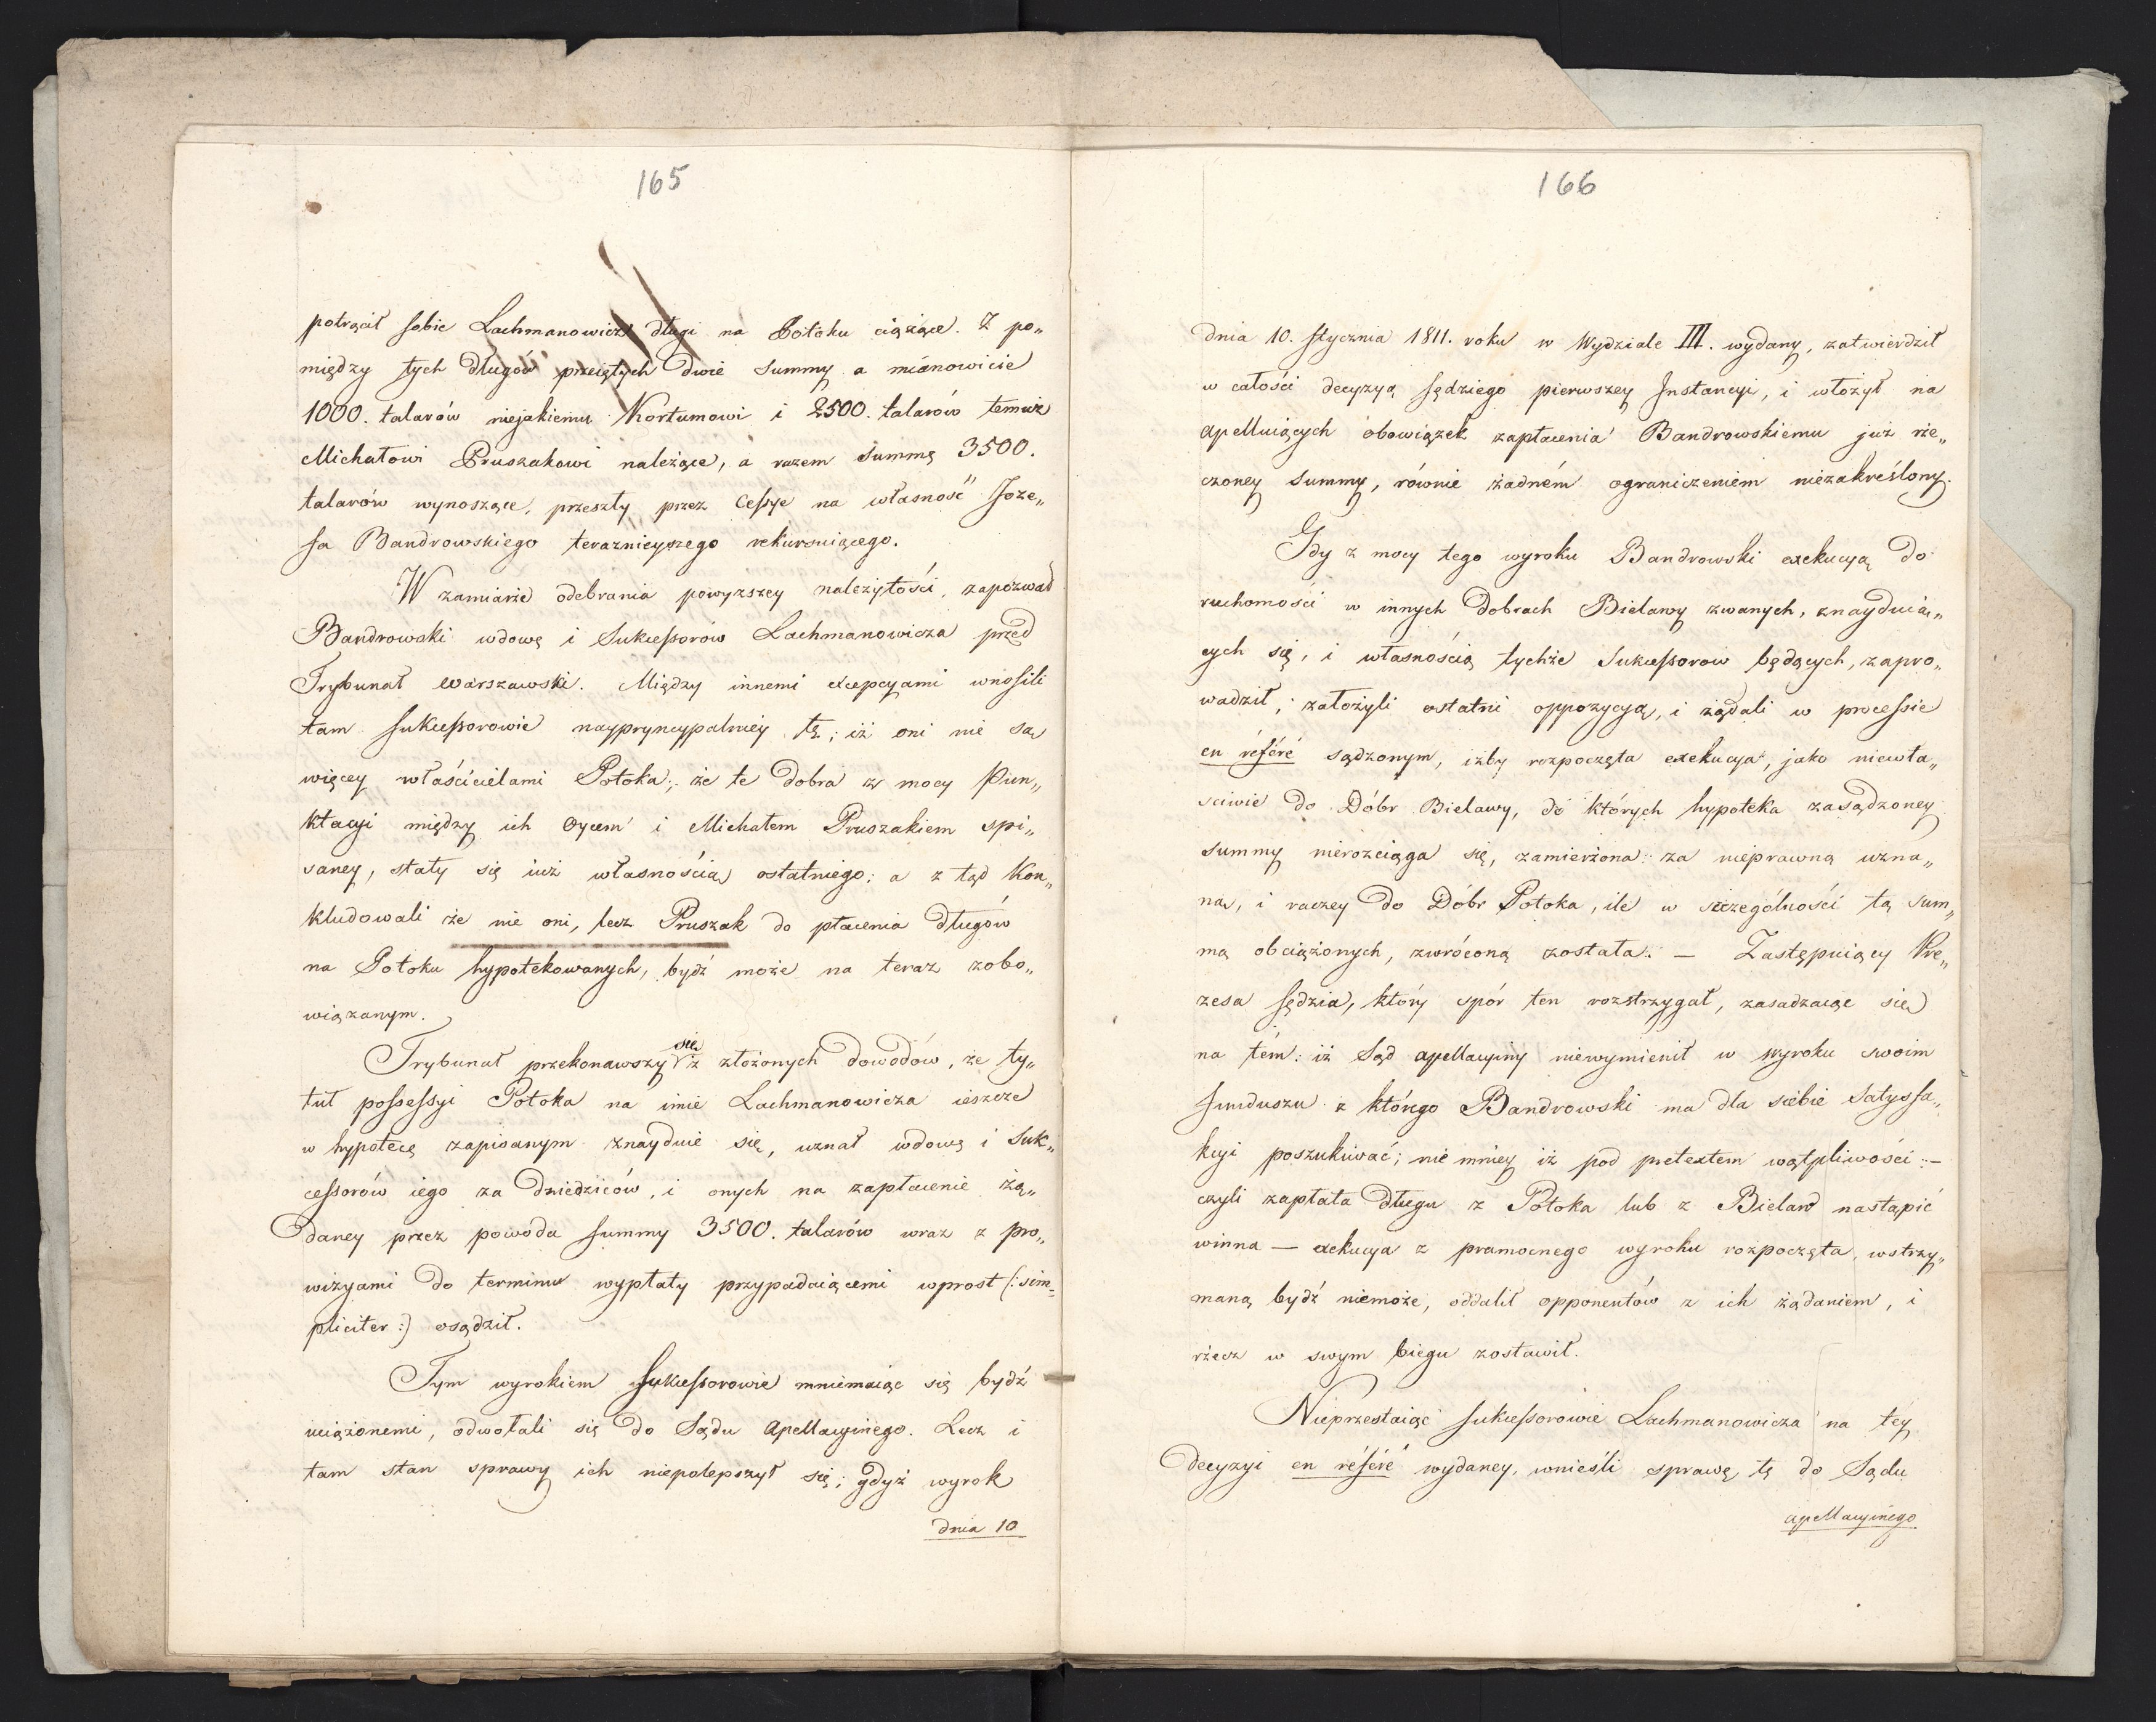 165
potrącił sobie Lachmanowicz długi na Potoku ciążące. Z po„
między tych długów przeiętych dwie summy a mianowicie
1000. talarów niejakiemu Kortumowi i 2500. talarów temuż
Michałowi Pruszakowi należące, a razem summę 3500.
talarów wynoszące, przeszły przez Cessye na własność Joze„
fa Bandrowskiego teraznieyszego rekursuiącego.
W zamiarze odebrania powyzszey należytości, zapozwał
Bandrowski wdowę i Sukcessorów Lachmanowicza przed
Trybunał Warszawski. Między innemi excepcyami wnosili
tam sukcessorowie naypryncypalniey tę; iż oni nie są
więcey właścicielami Potoka; że te dobra z mocy Pun„
ktacyi między ich Oycem i Michałem Pruszakiem spi„
saney, stały się iuż własnością ostatniego: a z tąd Kon„
kludowali że nie oni, lecz Pruszak do płacenia długów
na Potoku hypotekowanych, bydź może na teraz zobo„
wiązanym.
Trybunał przekonawszy się z złożonych dowodów, że ty„
tuł possessyi Potoka na imie Lachmanowicza ieszcze
w hypotece zapisanym znayduie się, uznał wdowę i Suk„
cessorów iego za Dziedziców, i onych na zapłacenie żą„
daney przez powoda summy 3500. talarów wraz z pro„
wizyami do terminu wypłaty przypadaiącemi wprost (: sim„
pliciter :) osądził.
Tym wyrokiem sukcessorowie mniemaiąc się bydź
uciążonemi, odwołali się do Sądu Apellacyinego. Lecz i
tam stan sprawy ich niepolepszył się; gdyż wyrok
dnia 10
166
dnia 10. stycznia 1811. roku w Wydziale III. wydany, zatwierdził
w całości decyzyą sędziego pierwszey Instancyi, i włożył na
apelluiących obowiązek zapłacenia Bandrowskiemu już rze„
czoney summy, równie żadném ograniczeniem niezakreślony.
Gdy z mocy tego wyroku Bandrowski exekucyą do
ruchomości w innych dobrach Bielawy zwanych, znayduią„
cych się, i własnością tychże Sukcessorow będących, zapro„
wadził; założyli ostatni oppozycyą, i żądali w processie
en référé sądzonym, iżby rozpoczęta exekucya, jako niewła„
sciwie do Dóbr Bielawy, do których hypoteka zasądzoney
summy nierozciąga się, zamierzona: za nieprawną uzna„
ną, i raczey do Dóbr Potoka, ile w szczególności tą sum„
mą obciążonych, zwróconą została. — Zastępuiący Pre„
zesa sędzia, który spór ten rozstrzygał, zasadzaiąc się
na tém: iż Sąd apellacyiny niewymienił w wyroku swoim
funduszu z którego Bandrowski ma dla siebie Satysfa„
kcyi poszukiwać; nie mniey iż pod pretextem wątpliwości: —
czyli zapłata długu z Potoka lub z Bielaw nastąpić
winna — exekucya z pramocnego wyroku rozpoczęta, wstrzy„
maną bydź niemoże, oddalił opponentów z ich żądaniem, i
rzecz w swym biegu zostawił.
Nieprzestaiąc sukcessorowie Lachmanowicza na téy
decyzyi en référé wydaney, wnieśli sprawę tę do Sądu
apellacyinego